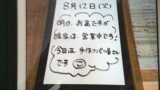 8月12日(火)
明日、お盆ですが
当店は、営業中です♪
今日は、手作りパン屋さん
です